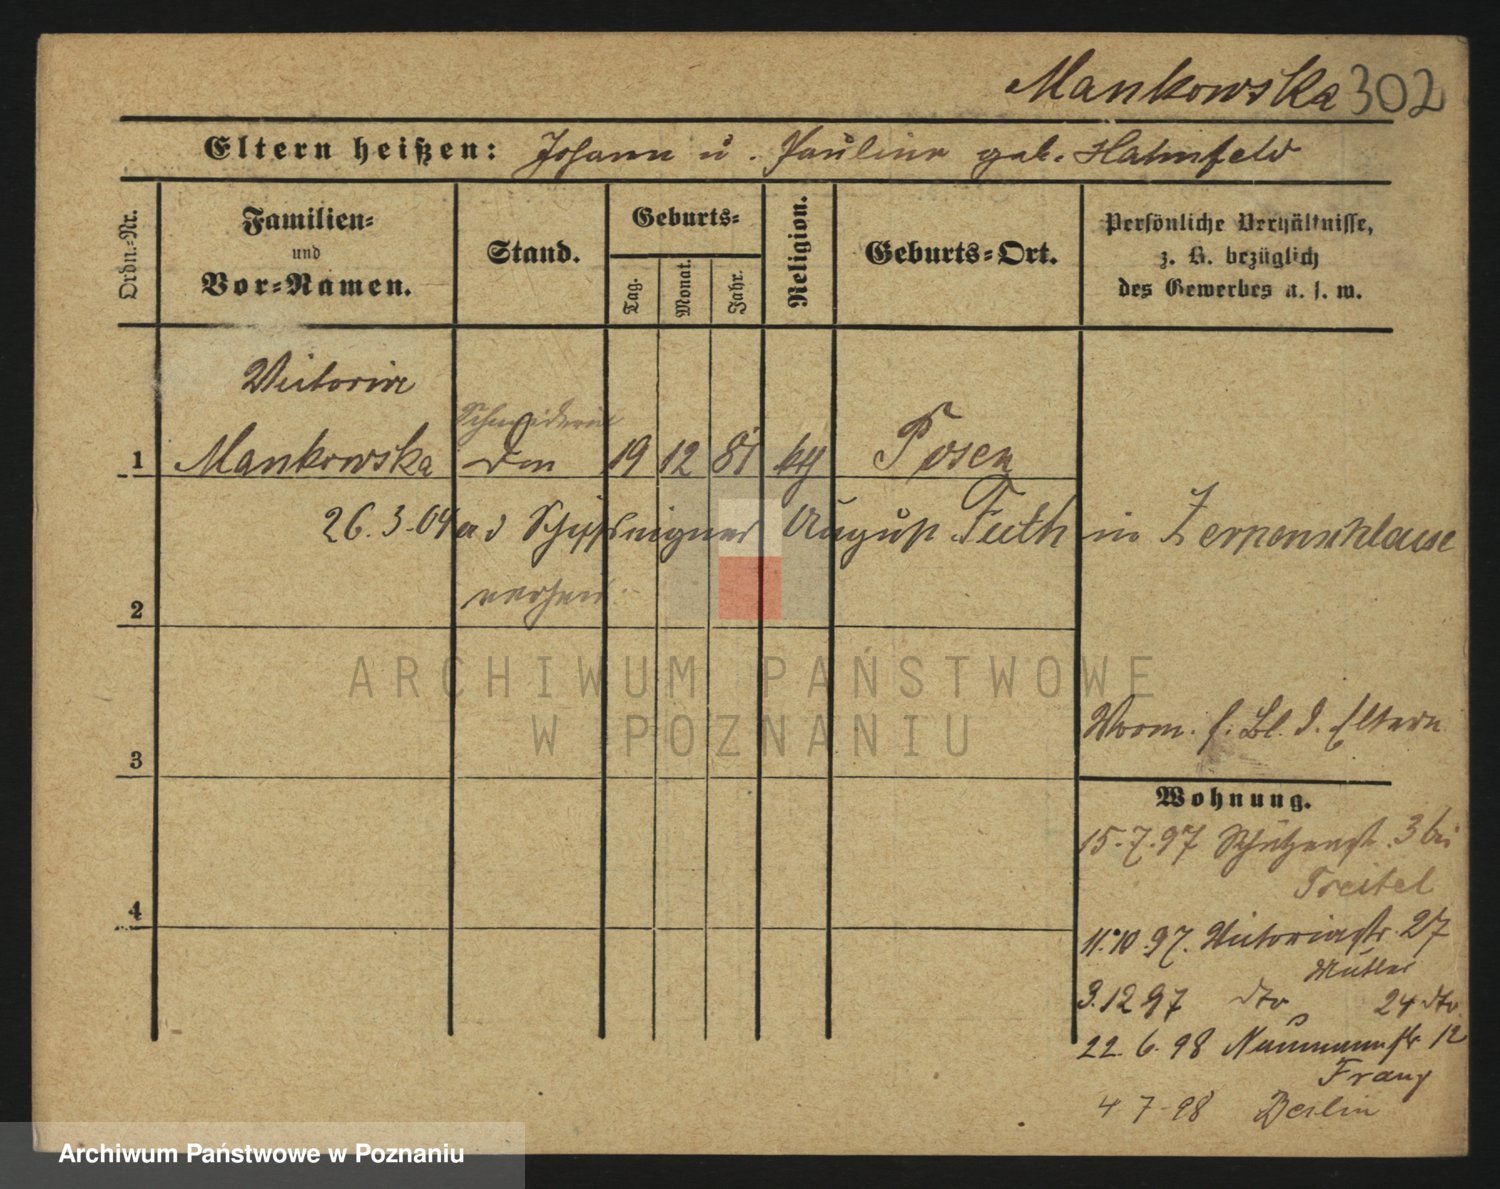 Mankowska 302
Eltern heißen: Johann u. Pauline geb. Hahnfeld
Ordn.-Nr.
Familien- und Vor-Namen.
Stand.
Geburts-
Tag.
Monat.
Jahr.
Religion.
Geburts-Ort.
Persönliche Verhältnisse,
z. B. bezüglich
des Gewerbes u. s. w.
Victorine
Schneiderin
1 Mankowska 19 12 81 kth Posen
26.3.04 a d Schiffseigner August Feith in Zerpenschleuse
2 verheir.
ARCHIWUM PAŃSTWOWE
W POZNANIU
3
Vorm. s. Bl. d. Eltern
Wohnung.
15.7.97 Schützenstr. 3 bei
Treitel
4
11.10.97. Victoriastr. 27
Mutter
3.12 97 dto 24 dto
22.6.98 Naumannstr 12
Franz
4 7-98 Berlin
Archiwum Państwowe w Poznaniu